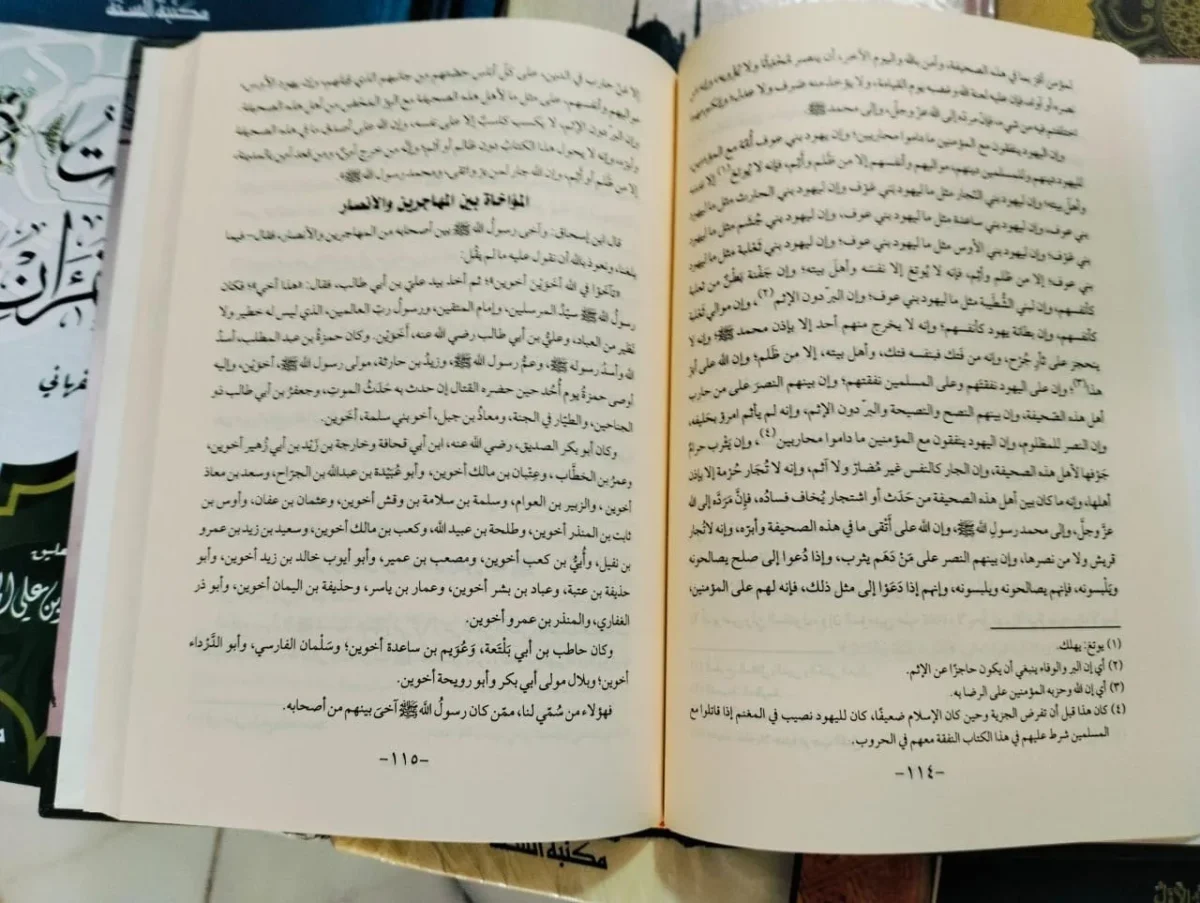 لمؤمن أقرّ بما في هذه الصحيفة، وآمن بالله واليوم الآخر، أن ينصر مُحْدِثًا ولا يُؤويه، وإنه من
نصره أو آواه، فإن عليه لعنة الله وغضبه يوم القيامة، ولا يؤخذ منه صَرف ولا عدل؛ وإنكم مهما
اختلفتم فيه من شيء، فإن مردّه إلى الله عزّ وجلّ، وإلى محمد ﷺ.
وإن اليهود ينفقون مع المؤمنين ما داموا محاربين؛ وإن يهود بني عوف أُمَّة مع المؤمنين،
لليهود دينهم، وللمسلمين دينهم، مواليهم وأنفسهم إلا من ظَلم وأثِم، فإنه لا يُوتغ (١) إلا نفسه
وأهل بيته؛ وإن ليهود بني النجار مثل ما ليهود بني عَوْف؛ وإن ليهود بني الحارث مثل ما ليهود
بني عوف؛ وإن ليهود بني ساعدة مثل ما ليهود بني عوف، وإن ليهود بني جُشم مثل ما ليهود
بني عَوْف؛ وإن ليهود بني الأوس مثل ما ليهود بني عوف؛ وإن ليهود بني ثَعْلبة مثل ما ليهود
بني عوف؛ إلا من ظلم وأثِم، فإنه لا يُوتغ إلا نفسَه وأهلَ بيته؛ وإن جَفْنة بَطْنٌ من ثعلبة
كأنفسهم، وإن لبني الشُّطَيبة مثل ما ليهود بني عوف؛ وإن البرّ دون الإثم (٢)، وإن موالي ثعلبة
كأنفسهم؛ وإن بطانة يهود كأنفسهم؛ وإنه لا يخرج منهم أحد إلا بإذن محمد ﷺ؛ وإنه لا
ينحجز على ثأرٍ جُرْح، وإنه من فَتك فبنفسه فتك، وأهل بيته، إلا من ظَلم؛ وإن الله على أبرّ
هذا (٣)؛ وإن على اليهود نفقتهم وعلى المسلمين نفقتهم؛ وإن بينهم النصرَ على من حارب
أهل هذه الصَّحيفة، وإن بينهم النصح والنصيحة والبرّ دون الإثم، وإنه لم يأثم امرؤ بحَليفه،
وإن النصر للمظلوم، وإن اليهود ينفقون مع المؤمنين ما داموا محاربين (٤)، وإن يَثْرب حرامٌ
جَوْفها لأهل هذه الصحيفة، وإن الجار كالنفس غير مُضارّ ولا آثم، وإنه لا تُجار حُرْمة إلا بإذن
أهلها، وإنه ما كان بين أهل هذه الصحيفة من حَدَث أو اشتجار يُخاف فسادُه، فإنَّ مَرَدّه إلى الله
عزّ وجلّ، وإلى محمد رسولِ الله ﷺ، وإن الله على أتْقى ما في هذه الصحيفة وأبرّه، وإنه لا تُجار
قريش ولا من نصرها، وإن بينهم النصر على مَنْ دَهَم يثرب، وإذا دُعوا إلى صلح يصالحونه
ويَلْبسونه، فإنهم يصالحونه ويلبسونه، وإنهم إذا دَعَوْا إلى مثل ذلك، فإنه لهم على المؤمنين،
(١) يوتغ: يهلك.
(٢) أي إن البر والوفاء ينبغي أن يكون حاجزًا عن الإثم.
(٣) أي إن الله وحزبه المؤمنين على الرضا به.
(٤) كان هذا قبل أن تفرض الجزية وحين كان الإسلام ضعيفًا، كان لليهود نصيب في المغنم إذا قاتلوا مع
المسلمين شرط عليهم في هذا الكتاب النفقة معهم في الحروب.
-١١٤-
إلا مَنْ حارب في الدين، على كلّ أناس حصّتهم من جانبهم الذي قِبَلهم، وإن يهود الأوس،
مواليهم وأنفسهم، على مثل ما لأهل هذه الصحيفة مع البرّ المحض من أهل هذه الصحيفة
وإن البر دون الإثم، لا يكسب كاسبٌ إلا على نفسه، وإن الله على أصدق ما في هذه الصحيفة
وأبرّه، وإنه لا يحول هذا الكتابُ دون ظالم أو آثم؛ وإنه من خرج آمنٌ، ومن قعد آمن بالمدينة،
إلا من ظَلم أو أثِم، وإن الله جار لمن برّ واتقى، ومحمد رسول الله ﷺ».
المؤاخاة بين المهاجرين والأنصار
قال ابن إسحاق: وآخى رسولُ الله ﷺ بين أصحابه من المهاجرين والأنصار، فقال- فيما
بلغنا، ونعوذ بالله أن نقول عليه ما لم يقُل:
«تآخَوْا في الله أخوَيْن أخوين»؛ ثم أخذ بيد علي بن أبي طالب، فقال: «هذا أخي»؛ فكان
رسولُ الله ﷺ سيّدُ المرسلين، وإمام المتقين، ورسولُ ربّ العالمين، الذي ليس له خطير ولا
نظير من العباد، وعليُّ بن أبي طالب رضي الله عنه، أخَوَيْن. وكان حمزةُ بن عبد المطلب، أسدُ
الله وأسدُ رسوله ﷺ، وعمُّ رسول الله ﷺ، وزيدُ بن حارثة، مولى رسول الله ﷺ، أخوَيْن، وإليه
أوصى حمزةُ يوم أُحُد حين حضره القتال إن حدث به حَدَثُ الموت، وجعفرُ بن أبي طالب ذو
الجناحين، الطيّار في الجنة، ومعاذُ بن جبل، أخو بني سلمة، أخوين.
وكان أبو بكر الصديق، رضي الله عنه، ابن أبي قحافة وخارجة بن زَيْد بن أبي زُهير أخوين،
وعمرُ بن الخطَّاب، وعِتبان بن مالك أخوين، وأبو عُبَيْدة بن عبدالله بن الجراح، وسعد بن معاذ
أخوين، والزبير بن العوام، وسلمة بن سلامة بن وقش أخوين، وعثمان بن عفان، وأوس بن
ثابت بن المنذر أخوين، وطلحة بن عبيد الله، وكعب بن مالك أخوين، وسعيد بن زيد بن عمرو
بن نفيل، وأُبيُّ بن كعب أخوين، ومصعب بن عمير، وأبو أيوب خالد بن زيد أخوين، وأبو
حذيفة بن عتبة، وعباد بن بشر أخوين، وعمار بن ياسر، وحذيفة بن اليمان أخوين، وأبو ذر
الغفاري، والمنذر بن عمرو أخوين.
وكان حاطب بن أبي بَلْتَعة، وعُوَيم بن ساعدة أخوين؛ وسَلْمان الفارسي، وأبو الدَّرْداء
أخوين؛ وبلال مولى أبي بكر وأبو رويحة أخوين.
فهؤلاء من سُمّي لنا، ممّن كان رسولُ الله ﷺ آخىَ بينهم من أصحابه.
-١١٥-
مكتبة السنة
مكتبة السنة